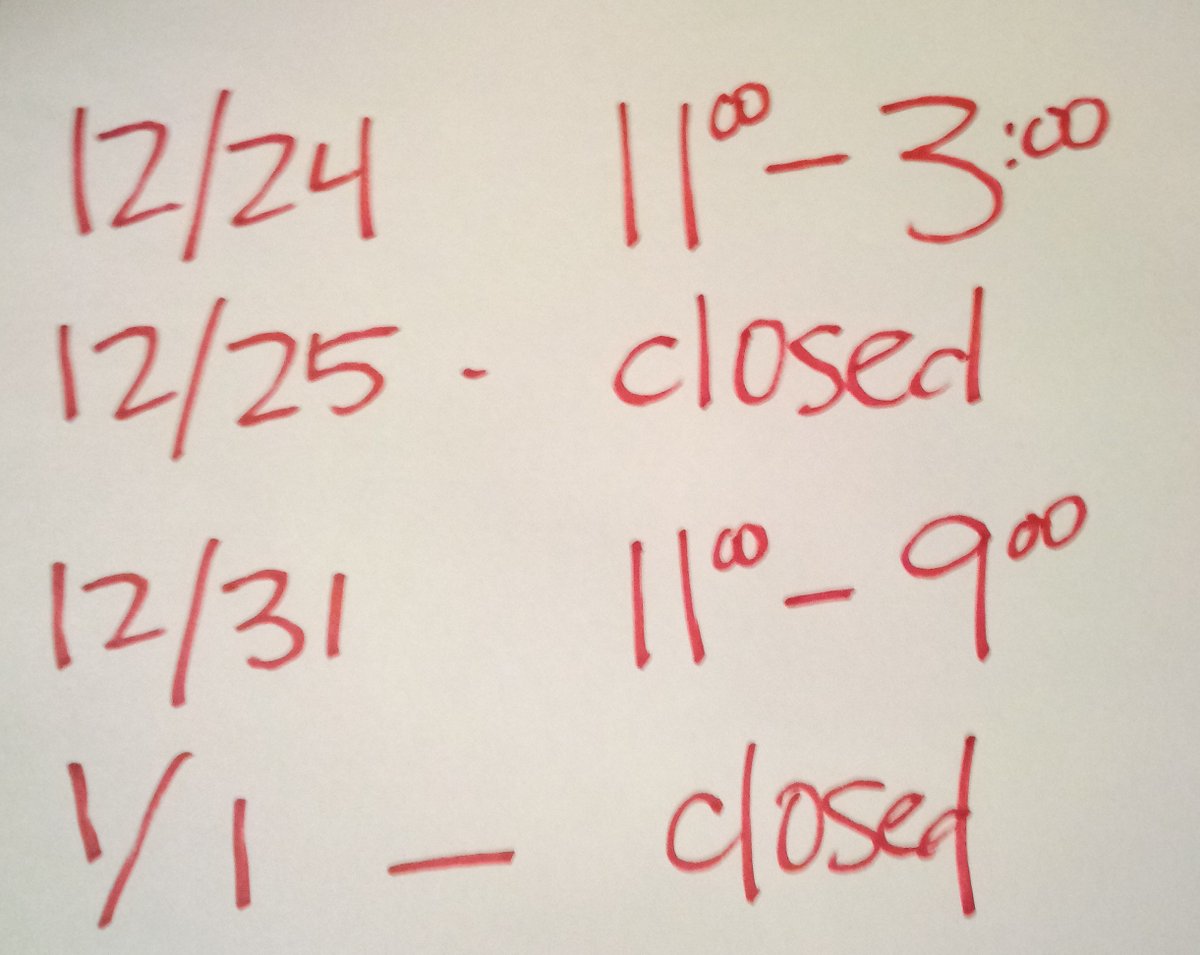 12/24 1100 - 3:00
12/25 - closed
12/31 1100 - 900
1/1 - closed